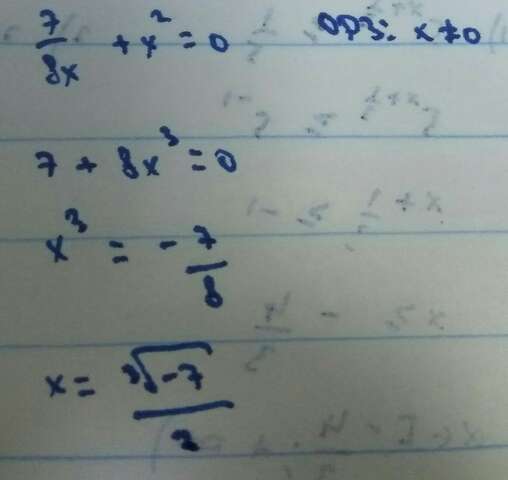 7/8x + x² = 0 ОДЗ: x ≠ 0
7 + 8x³ = 0
x³ = -7/8
x = ∛-7/2